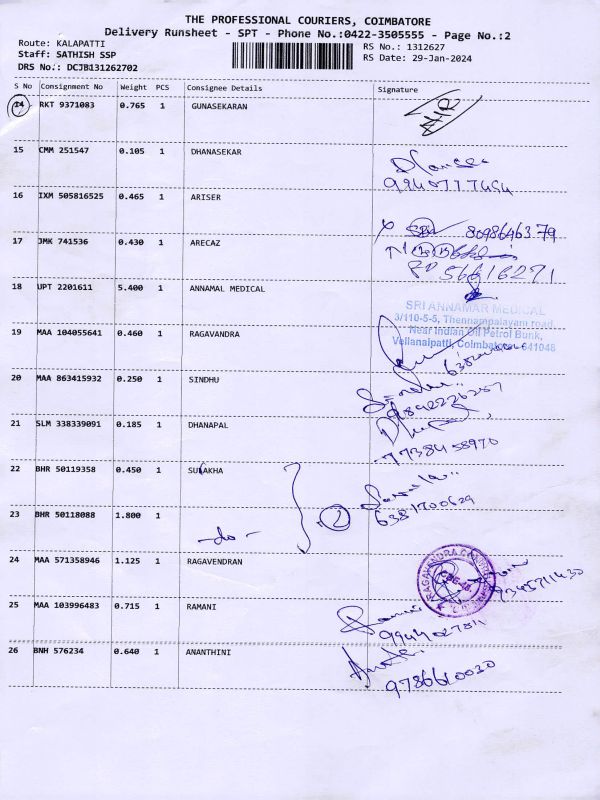 THE PROFESSIONAL COURIERS, COIMBATORE
Delivery Runsheet - SPT - Phone No.:0422-3505555 - Page No.:2
Route: KALAPATTI
RS No.: 1312627
Staff: SATHISH SSP
RS Date: 29-Jan-2024
DRS No.: DCJB131262702
S No Consignment No Weight PCS Consignee Details Signature
14 RKT 9371083 0.765 1 GUNASEKARAN
15 CMM 251547 0.105 1 DHANASEKAR
9940777494
16 IXM 505816525 0.465 1 ARISER
80986463.79
17 JMK 741536 0.430 1 ARECAZ
56616271
18 UPT 2201611 5.400 1 ANNAMAL MEDICAL
SRI ANNAMAR MEDICAL
3/110-5-5, Thennampalayam road,
Near Indian Oil Petrol Bunk,
Vellanaipatti, Coimbatore - 641048
19 MAA 104055641 0.460 1 RAGAVANDRA
20 MAA 863415932 0.250 1 SINDHU
21 SLM 338339091 0.185 1 DHANAPAL
7738458970
22 BHR 50119358 0.450 1 SULAKHA
2
6381700629
23 BHR 50118088 1.800 1
-do-
24 MAA 571358946 1.125 1 RAGAVENDRAN
9345711430
25 MAA 103996483 0.715 1 RAMANI
26 BNH 576234 0.640 1 ANANTHINI
9786610030